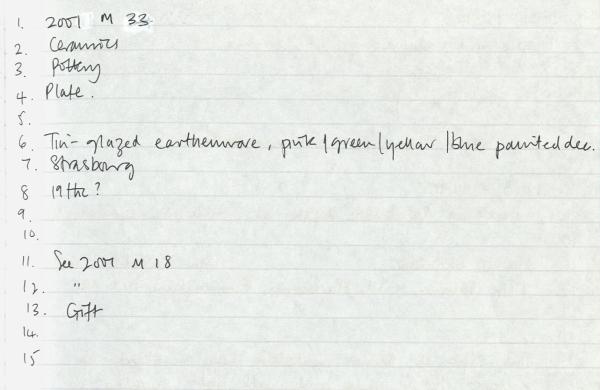 1. 2001 M 33
2. Ceramics
3. Pottery
4. Plate.
5.
6. Tin-glazed earthenware, pink/green/yellow/blue painted dec.
7. Strasbourg
8 19thc?
9.
10.
11. See 2001 M 18
12. "
13. Gift
14.
15